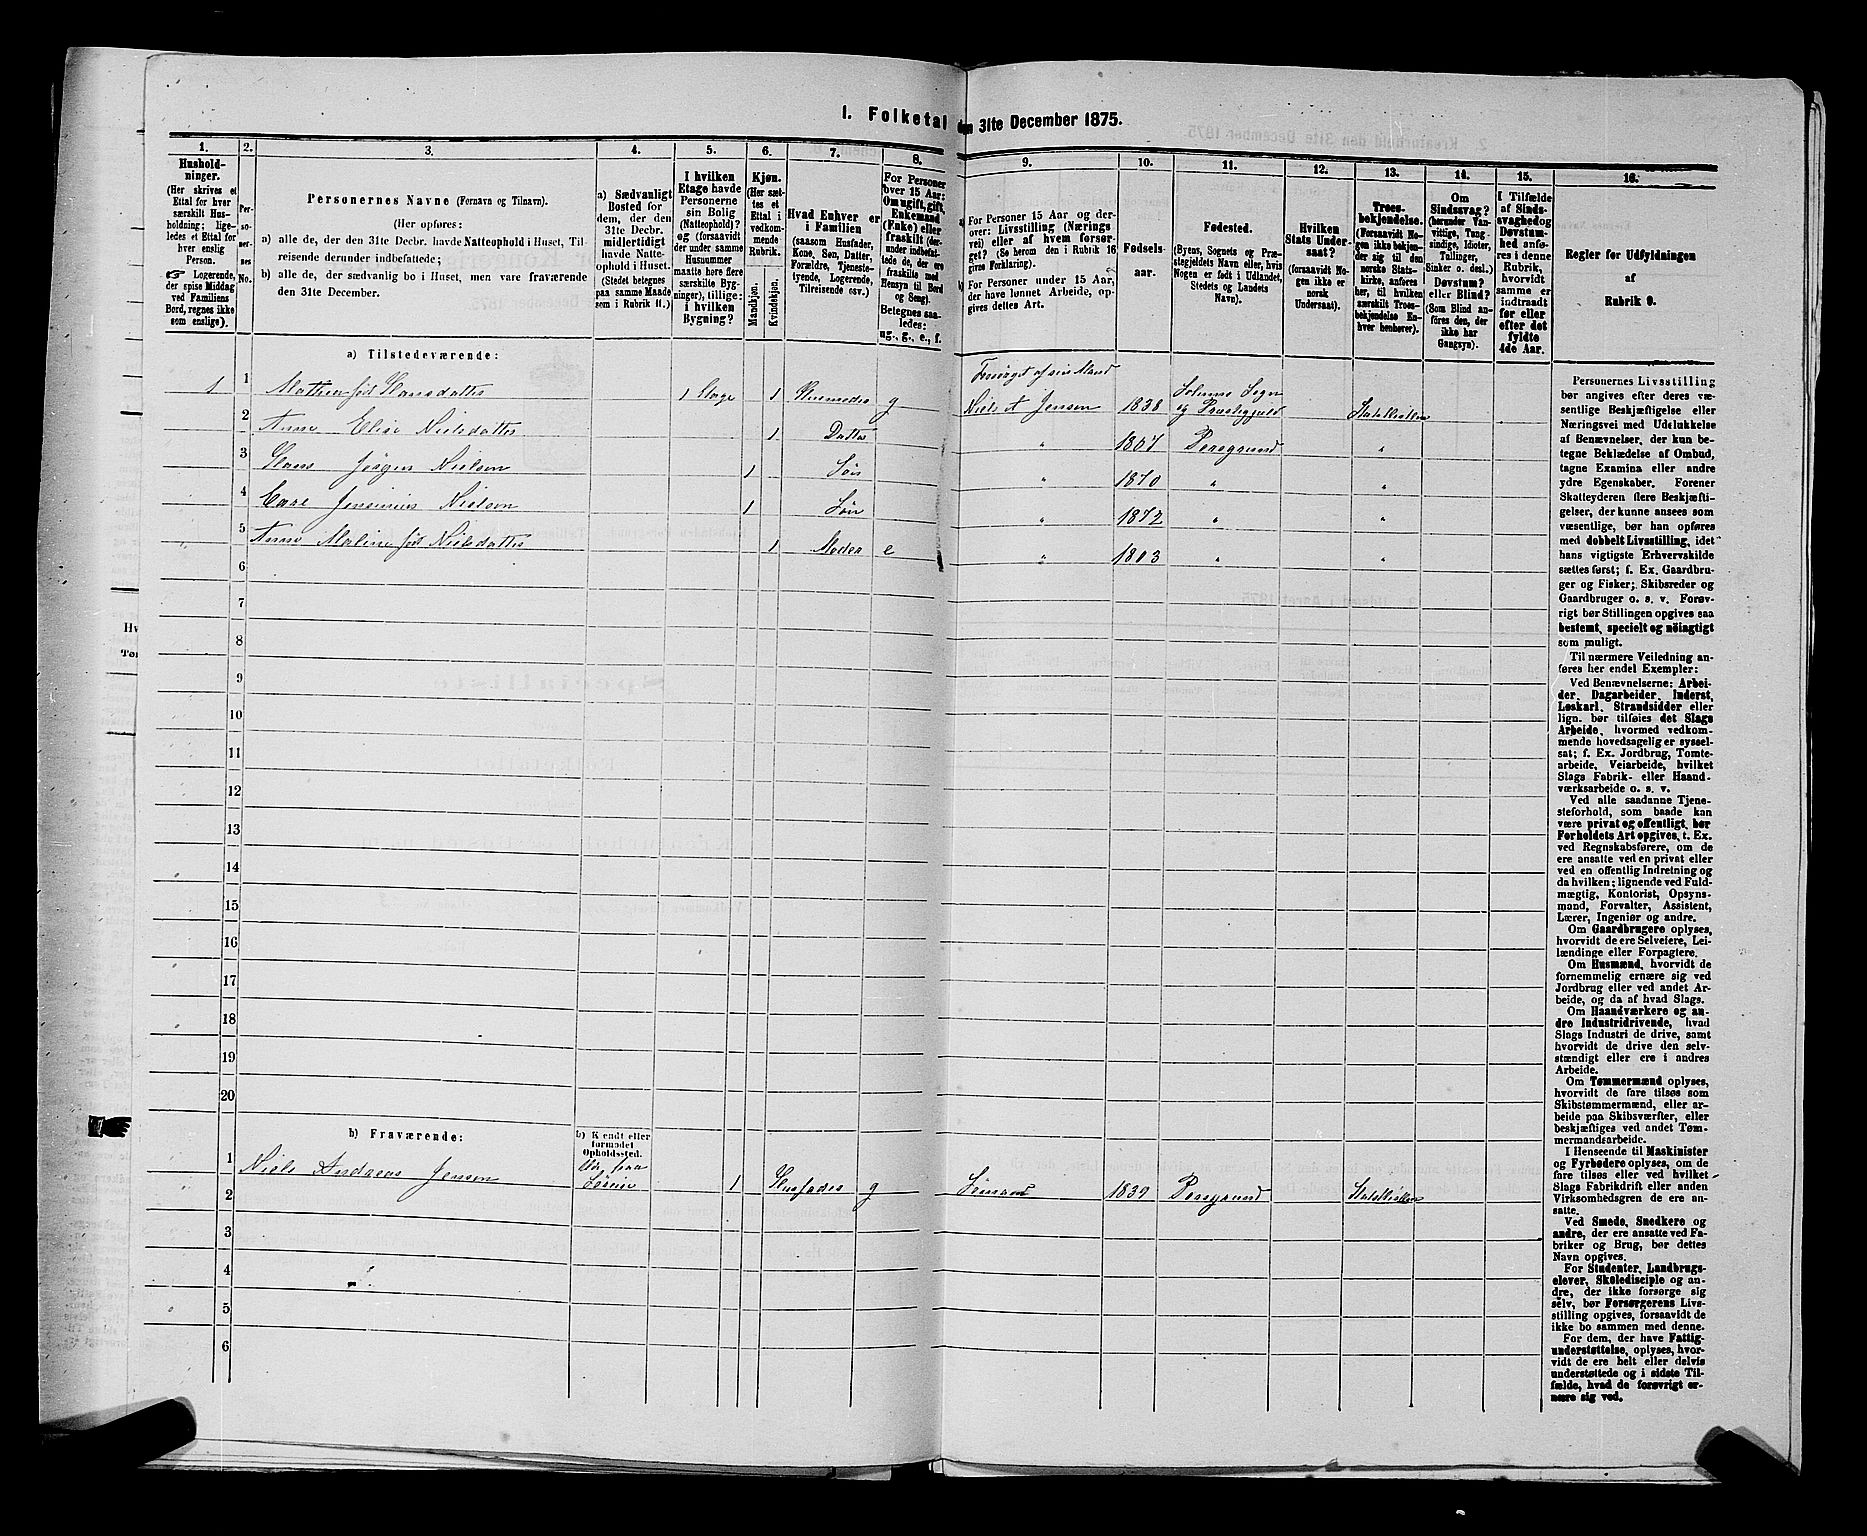 1. Folketal den 31te December 1875.
1.
2.
3.
4.
5.
6.
7.
8.
9.
10.
11.
12.
13.
14.
15.
16.
Hushold-
ninger.
(Her skrives et
Ettal for hver
særskilt Hus-
holdning; lige-
ledes et Ettal for
hver enslig
Person.
☞ Logerende,
der spise Middag
ved Familiens
Bord, regnes ikke
som enslige).
Per-
so-
ner-
nes
No.
Personernes Navne (Fornavn og Tilnavn).
(Her opføres:
a) alle de, der den 31te Decbr. havde Natteophold i Huset, Til-
reisende derunder indbefattede;
b) alle de, der sædvanlig bo i Huset, men vare fraværende
den 31te December.
a) Sædvanligt
Bosted for
dem, der den
31te Decbr.
midlertidigt
havde Natte-
ophold i Huset.
(Stedet betegnes
paa samme Maade
som i Rubrik 11.)
I hvilken
Etage havde
Personerne
sin Bolig
(Natteophold)?
og (forsaavidt
der under samme
Husnummer
maatte høre flere
særskilte Byg-
ninger), tillige:
i hvilken
Bygning?
Kjøn.
(Her sæt-
tes et
Ettal i
vedkom-
mende
Rubrik.
Mandkjøn.
Kvindekjøn.
Hvad Enhver er
i Familien
(saasom Husfader,
Kone, Søn, Datter,
Forældre, Tjeneste-
tyende, Logerende,
Tilreisende osv.)
For Personer
over 15 Aar:
Om ugift, gift,
Enkemand
(Enke) eller
fraskilt (der-
under indbefat-
tede de, der ere
fraskilte med
Hensyn til Bord
og Seng).
Betegnes saa-
ledes:
ug., g., e., f.
a) For Personer 15 Aar og der-
over: Livsstilling (Nærings
vei) eller af hvem forsør-
get? (Se herom den i Rubrik 16
givne Forklaring).
b) For Personer under 15 Aar,
der have lønnet Arbeide, op-
gives dettes Art.
Fødsels-
aar.
Fødested.
(Byens, Sognets og Præ-
stegjeldets Navn eller, hvis
Nogen er født i Udlandet,
Stedets og Landets
Navn).
Hvilken
Stats Under-
saat?
(forsaavidt No-
gen ikke er
norsk
Undersaat).
Troes-
bekjendelse.
(Forsaavidt No-
gen ikke bekjen-
der sig til den
norske Stats-
kirke, anføres
her, til hvilken
særskilt Troes-
bekjendelse En-
hver henhører).
Om
Sindssvag?
(herunder Van-
vittige, Tung-
sindige, Idioter,
Tullinger,
Sinker o. desl.)
Døvstum?
eller Blind?
(Som Blind an-
føres den, der
ikke har
Gangsyn).
I Tilfælde
af Sinds-
svaghed og
Døvstum-
hed anfø-
res i denne
Rubrik,
hvorvidt
samme er
indtraadt
før eller
efter det
fyldte
4de Aar.
Regler for Udfyldningen
af
Rubrik 9.
a) Tilstedeværende:
1 1 Mathea født Hansdatter 1 Etage 1 Husmoder g Forsørget af sin Mand Niels A Jensen 1838 Solums Sogn og Præstegjeld Statskirken
2 Anne Elise Nielsdatter 1 Datter " 1867 Porsgrund "
3 Hans Jørgen Nielsen 1 Søn " 1870 " "
4 Carl Nielsen 1 Søn " 1872 " "
5 Anne Maline født Nielsdatter 1 Moder e " 1803 " "
6
7
8
9
10
11
12
13
14
15
16
17
18
19
20
b) Fraværende:
b) Kjendt eller
formodet
Opholdssted.
1 Niels Andreas Jensen 1 Husfader g Sømand 1839 Porsgrund Statskirken
2
3
4
5
6
Personernes Livsstilling
bør angives efter deres væ-
sentlige Beskjæftigelse eller
Næringsvei med Udelukkelse
af Benævnelser, der kun be-
tegne Beklædelse af Ombud,
tagne Examina eller andre
ydre Egenskaber. Forener
Skatteyderen flere Beskjæfti-
gelser, der kunne ansees som
væsentlige, bør han opføres
med dobbelt Livsstilling, idet
hans vigtigste Erhvervskilde
sættes først; f. Ex. Gaardbru-
ger og Fisker; Skibsreder og
Gaardbruger o. s. v. Forøv-
rigt bør Stillingen opgives saa
bestemt, specielt og nöiagtigt
som muligt.
Til nærmere Veiledning an-
føres her endel Exempler:
Ved Benævnelserne: Arbei-
der, Dagarbeider, Inderst,
Løskarl, Strandsidder eller
lign. bør tilføies det Slags
Arbeide, hvormed vedkom-
mende hovedsagelig er syssel-
sat; f. Ex. Jordbrug, Tomte-
arbeide, Veiarbeide, hvilket
Slags Fabrik- eller Haand-
værksarbeide o. s. v.
Ved alle saadanne Tjene-
steforhold, som baade kan
være privat og offentligt, bør
Forholdets Art opgives, t. Ex.
ved Regnskabsførere, om de
ere ansatte ved en privat eller
ved en offentlig Indretning og
da hvilken; lignende ved Fuld-
mægtig, Kontorist, Opsyns-
mand, Forvalter, Assistent,
Lærer, Ingeniør og andre.
Om Gaardbrugere oplyses,
hvorvidt de ere Selveiere, Lei-
lændinge eller Forpagtere.
Om Husmænd, hvorvidt de
fornemmelig ernære sig ved
Jordbrug eller ved andet Ar-
beide, og da af hvad Slags.
Om Haandværkere og an-
dre Industridrivende, hvad
Slags Industri de drive, samt
hvorvidt de drive den selv-
stændigt eller ere i andres
Arbeide.
Om Tømmermænd oplyses,
hvorvidt de fare tilsøs som
Skibstømmermænd, eller ar-
beide paa Skibsværfter, eller
beskjæftiges ved andet Tøm-
mermandsarbeide.
I Henseende til Maskinister
og Fyrbødere oplyses, om de
fare tilsøs eller ved hvilket
Slags Fabrikdrift eller anden
Virksomhedsgren de ere an-
satte.
Ved Smede, Snedkere og
andre, der ere ansatte ved Fa-
briker og Brug, bør dettes
Navn opgives.
For Studenter, Landbrugs-
elever, Skoledisciple og an-
dre, der ikke forsørge sig
selv, bør Forsørgerens Livs-
stilling opgives, forsaavidt de
ikke bo sammen med denne.
For dem, der have Fattig-
understøttelse, oplyses, hvor-
vidt de ere helt eller delvis
understøttede og i sidste Til-
fælde, hvad de forøvrigt er-
nære sig ved.